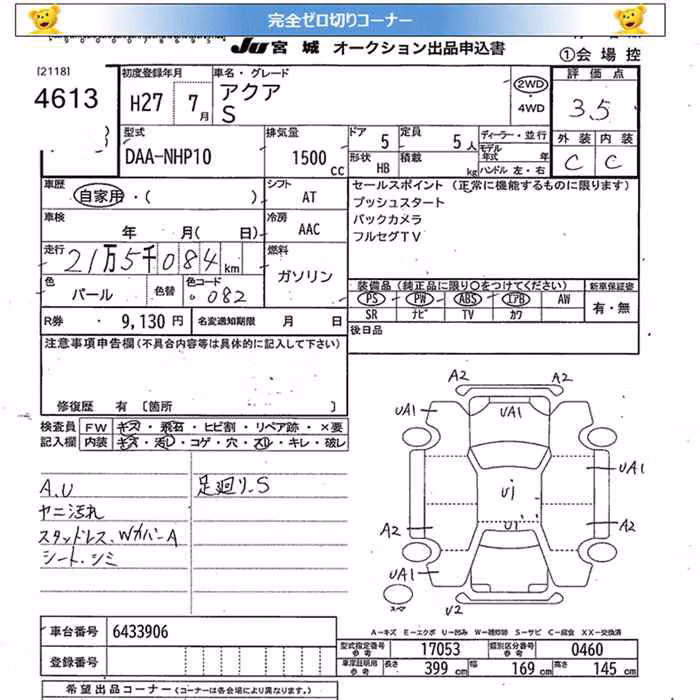 完全ゼロ切りコーナー
JU 宮城 オークション出品申込書
①会場控
[2118]
4613
初度登録年月
H27 7月
車名・グレード
アクア
S
2WD
・
4WD
評価点
3.5
型式
DAA-NHP10
排気量
1500 cc
ドア 5
定員 5人
形状 HB
積載 kg
ディーラー・並行
モデル年式 年
ハンドル 左・右
外装 内装
C C
車歴
自家用・( )
シフト
AT
車検
年 月( 日)
冷房
AAC
走行
21万5千084km
燃料
ガソリン
色
パール
色替
色コード
082
セールスポイント (正常に機能するものに限ります)
プッシュスタート
バックカメラ
フルセグTV
装備品(純正品に限り○をつけてください)
新車保証書
PS PW ABS エアB AW
SR ナビ TV カワ
有・無
R券・ 9,130 円
名変通知期限 月 日
後日品
注意事項申告欄(不具合内容等は具体的に記入して下さい)
修復歴 有 〔箇所 〕
検査員 FW キズ・飛石・ヒビ割・リペア跡・×要
記入欄 内装 キズ・汚レ・コゲ・穴・スレ・キレ・破レ
A.U
ヤニ汚れ
スタッドレス.WカバーA
シート.シミ
足廻り.S
A2 A2
UA1 UA1
UA1
U1
A2 U1 A2
UA1
U2
スマ
A-キズ E-エクボ U-凹み W-補修跡 S-サビ C-腐食 XX-交換済
車台番号 6433906
登録番号
型式指定番号参考 17053
類別区分番号参考 0460
車庫証明用参考 長さ 399 cm 幅 169 cm 高さ 145 cm
希望出品コーナー(コーナーは各会場により異なります。)